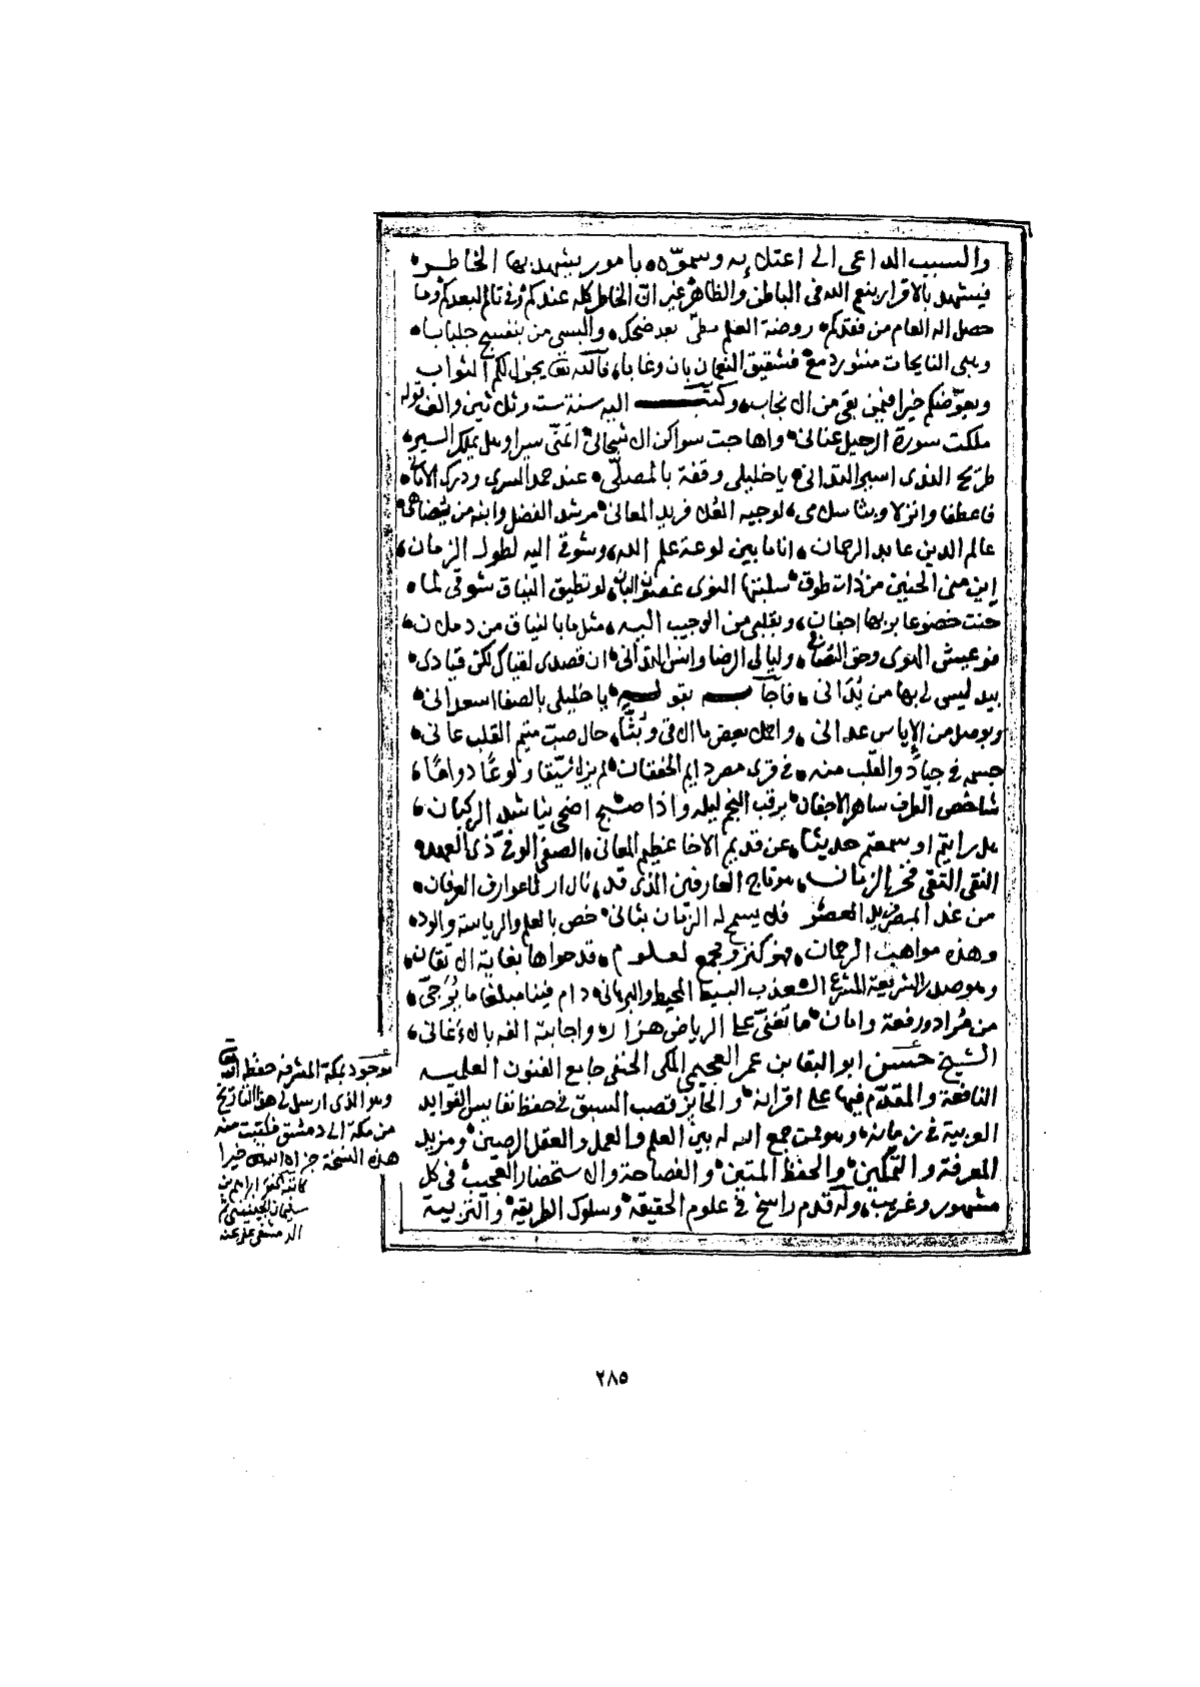 والسبب الداعي الى اعتلائه وسموّه، بامور يشهد بها الخاطر،
فيشهد بالاقرار ينبع الله في الباطن والظاهر غير ان الخاطر كله عندكم وفي تالم لبعدكم وما
حصل اله العام من فقدكم، روضة العلم بعد ضحك، والبسي من بنفسج جلبابا،
وهبي النايحات منثور دمع، فشقيق النعمان بان وغابا، فالله تعالى يجزل لكم الثواب
ويعوّضكم خيرا فيمن بقي من الانجاب، وكتب اليه سنة ست وثلاثين والف قوله
ملكت سورة الرحيل عناني، واهاجت سواكن الاشجاني، اتمنى سيرا وهل يملك السير،
طريح الندى اسير التداني، يا خليلي وقفة بالمصلّى، عند حمد السرى ودرك الاماني،
فاعطفا وانزلا وبثا سلامي، لوجيه العلا فريد المعاني، مرشد الفضل وابنه من يضاهى،
عالم الدين عابد الرحمان، انا ما بين لوعة علم الله، وشوقي اليه لطول الزمان،
اين مني الحنين من ذات طوق، سلبتها النوى غصون البان، لو تطيق النياق شوقي لما،
حنت خضوعا بربها اجفان، وبقلبي من الوجيب اليه، مثل ما بالنياق من ذملان،
فوعيش النوى وحق التصافي، وليالي الرضا وانس التداني، ان قصدي لقياك لكن قيادي،
بيد ليس لي بها من يدان، فاجاب بقوله، يا خليلي بالصفا اسعداني،
وبوصل من الاياس عداني، واحملا بعض ما الاقي وبثا، حال صب متيم القلب عاني،
جسمه في جياد والقلب منه، في قرى مصر دايم الخفقان، لم يزل شيقا ولوعًا دواما،
شاخص الطرف ساهر الاجفان، يرقب النجم ليله واذا صبح اضحى يناشد الركبان،
هل رايتم او سمعتم حديثا، عن قديم الاخا عظيم المعاني، الصفي الوفي ذي العهد
النقي التقي فخر الزمان، هو تاج العارفين الذي قد، نال ارثا عوارف العرفان،
من غدا فريد العصر فلا يسمح له الزمان بثاني، خص بالعلم والرياسة والود،
وهذه مواهب الرحمان، فهو كنز ومجمع لعلوم، قد حواها بغاية الاتقان،
دام فينا مبلغا ما يرجى،
من مراد ورفعة وامان، ما تغنى على الرياض هزار، واجابته الفه بالاغاني،
الشيخ حسن ابو البقا بن عمر العجيمي المكي الحنفي جامع الفنون العلمية
النافعة والمقدّم فيها على اقرانه، والحايز قصب السبق في حفظ نفايس الفوايد
العربية في زمانه، وهو ممن جمع الله له بين العلم والعمل والعقل الرصين، ومزيد
المعرفة والتمكين، والحفظ المتين، والفصاحة والاستحضار العجيب، في كل
مشهور وغريب، وله قدم راسخ في علوم الحقيقة، وسلوك الطريقة، والتربية
موجود بمكة المشرفة حفظه الله
وهو الذي ارسل لي هذا التاريخ
من مكة الى دمشق فكتبت منه
هذه النسخة جزاه الله خيرا
كاتبه الفقير ابراهيم بن
سليمان الجينيني ثم
الدمشقي عفي عنه
٢٨٥